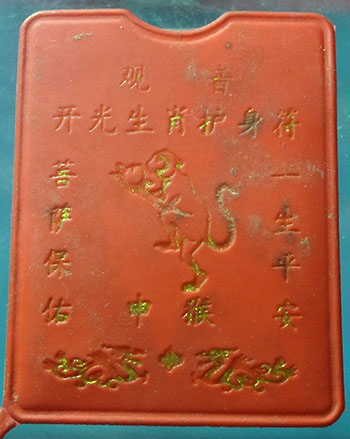 观音
开光生肖护身符
菩萨保佑
一生平安
申猴